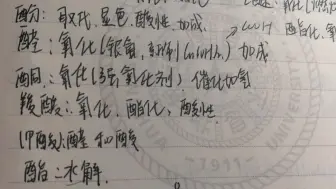 酚：取代、显色、酸性、加成
酯化、氧
醛：氧化(银氨、新制Cu(OH)₂) 加成
酮：氧化(强氧化剂) 催化加氢
羧酸：氧化、酯化、酸性
(甲酸)：醛和酸
酯：水解
1911